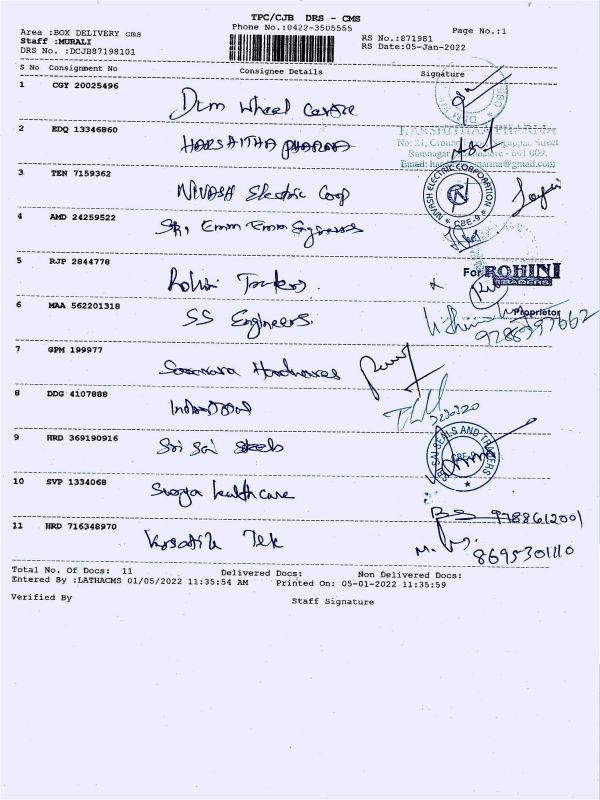 TPC/CJB DRS - CMS
Phone No.:0422-3505555
Page No.:1
Area :BOX DELIVERY cms
Staff :MURALI
DRS No. :DCJB87198101
RS No.:871981
RS Date:05-Jan-2022
S No Consignment No Consignee Details Signature
1 CGY 20025496
Dim Wheel Centre
2 EDQ 13346860
HARSHITHA PHARMA
HARSHITHAA PHARMA
No: 21, Ground Street
Ramnagar, Coimbatore - 641 009.
3 TEN 7159362
NIVASH Electric Corp
NIVASH ELECTRIC CORPORATION
CBE-9
4 AMD 24259522
Sri, Emm Emm Engineers
5 RJP 2844778
Rohini Traders
For ROHINI
TRADERS
Proprietor
6 MAA 562201318
SS Engineers
9788397662
7 GPM 199977
Hardwares
8 DDG 4107888
9 HRD 369190916
Sri Sai Steels
SRI SAI SEALS AND TRADERS
CBE-9
10 SVP 1334068
Surya healthcare
9788612001
11 HRD 716348970
Versatile Tek
8695301110
Total No. Of Docs: 11 Delivered Docs: Non Delivered Docs:
Entered By :LATHACMS 01/05/2022 11:35:54 AM Printed On: 05-01-2022 11:35:59
Verified By Staff Signature